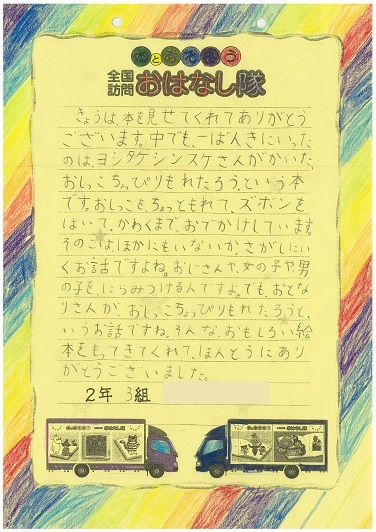 本とあそぼう
全国訪問おはなし隊
きょうは、本を見せてくれてありがとう
ございます。中でも、一ばんきにいった
のは、ヨシタケシンスケさんがかいた、
おしっこちょっぴりもれたろう、という本
です。おしっこを、ちょっともれて、ズボンを
はいて、かわくまで、おでかけしています。
そのこは、ほかにもいないか、さがしにい
くお話ですよね。おじさんや、女の子や男
の子を、にらみつけるんですよ。でも、おとな
りさんが、おしっこちょっぴりもれたろうと、
いうお話ですね。そんな、おもしろい絵
本をもってきてくれて、ほんとうにあり
がとうございました。
2年 3組
おはなし隊
おはなし隊